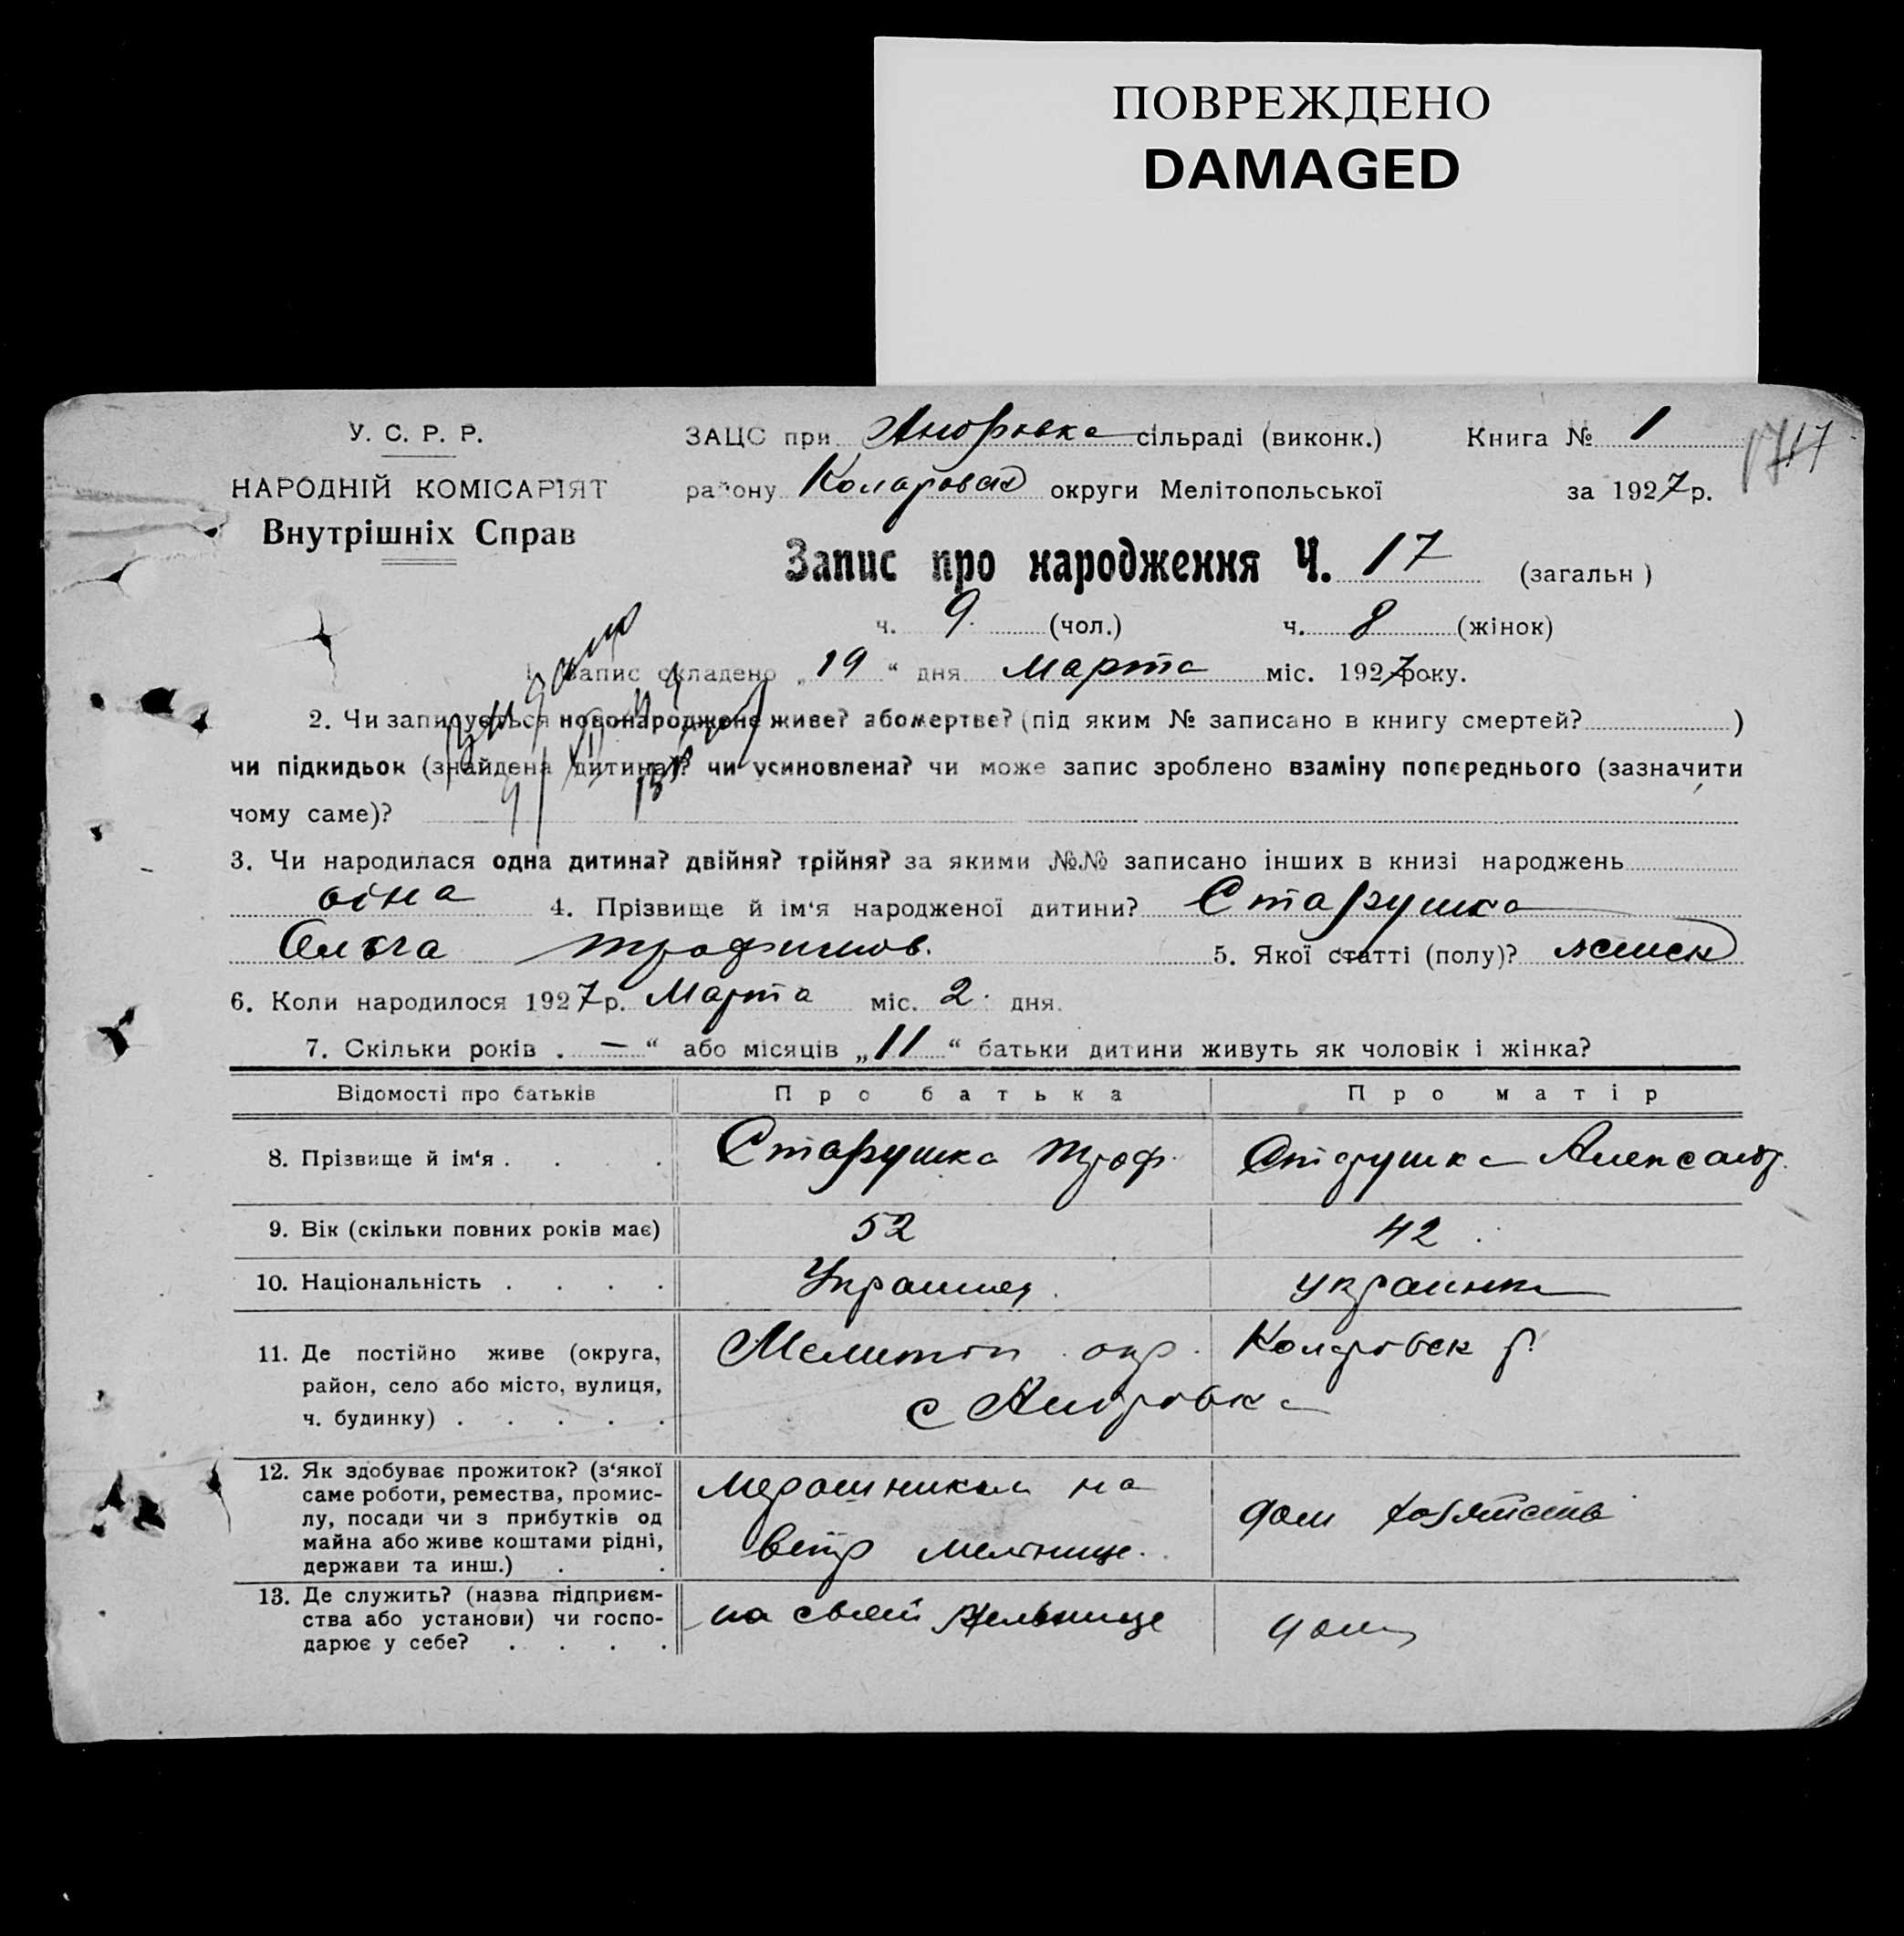 ПОВРЕЖДЕНО
DAMAGED
У. С. Р. Р.
НАРОДНІЙ КОМІСАРІЯТ
Внутрішніх Справ
ЗАЦС при Андровка сільраді (виконк.) Книга № 1
району Коларовск округи Мелітопольської за 1927 р.
17
Запис про народження Ч. 17 (загальн)
ч. 9 (чол.) ч. 8 (жінок)
1. Запис складено „19“ дня Марта міс. 1927 року.
2. Чи записується новонароджене живе? або мертве? (під яким № записано в книгу смертей? )
чи підкидьок (знайдена дитина)? чи усиновлена? чи може запис зроблено взаміну попереднього (зазначити
чому саме)?
3. Чи народилася одна дитина? двійня? трійня? за якими №№ записано інших в книзі народжень
одна 4. Прізвище й ім‘я народженої дитини? Старушка
Ольга Трофимов. 5. Якої статті (полу)? женск
6. Коли народилося 1927 р. Марта міс. 2 дня.
7. Скільки років . — “ або місяців „11“ батьки дитини живуть як чоловік і жінка?
Відомості про батьків Про батька Про матір
8. Прізвище й ім‘я . . . . Старушка Троф. Старушка Александр.
9. Вік (скільки повних років має) 52 42
10. Національність . . . . Украинец украинка
11. Де постійно живе (округа, Мелитоп. окр. Коларовск р.
район, село або місто, вулиця, с Андровка
ч. будинку) . . . . .
12. Як здобуває прожиток? (з‘якої
саме роботи, ремества, промис- на
лу, посади чи з прибутків од дом хозяйство
майна або живе коштами рідні, ветр мельнице.
держави та инш.) . .
13. Де служить? (назва підприєм- на своей мельнице дома
ства або установи) чи госпо-
дарює у себе? . . . .